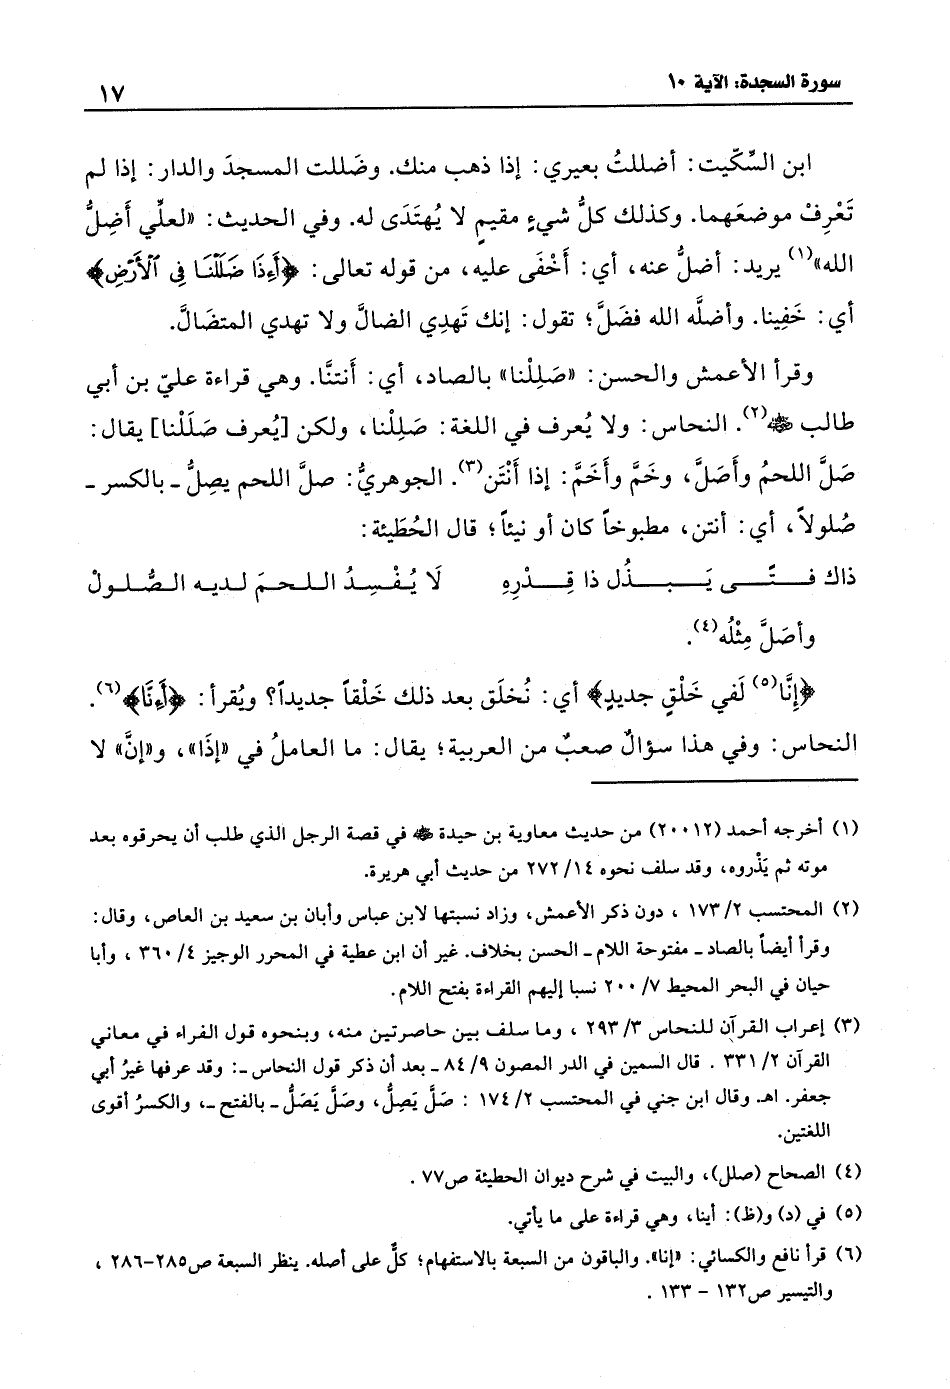 سورة السجدة: الآية ١٠
١٧
ابن السِّكِّيت: أضللتُ بعيري: إذا ذهب منك. وضَللت المسجدَ والدار: إذا لم
تَعْرِفْ موضعَهما. وكذلك كلُّ شيءٍ مقيمٍ لا يُهتَدَى له. وفي الحديث: «لعلِّي أَضِلُّ
الله»(١) يريد: أضلُّ عنه، أي: أَخْفَى عليه، من قوله تعالى: ﴿أَءِذَا ضَلَلْنَا فِى ٱلْأَرْضِ﴾
أي: خَفِينا. وأضلَّه الله فضَلَّ؛ تقول: إنك تَهدِي الضالَّ ولا تهدي المتضَالَّ.
وقرأ الأعمش والحسن: «صَلِلْنا» بالصاد، أي: أَنتنَّا. وهي قراءة عليّ بن أبي
طالب ﷺ(٢). النحاس: ولا يُعرف في اللغة: صَلِلْنا، ولكن [يُعرف صَلَلْنا] يقال:
صَلَّ اللحمُ وأَصَلَّ، وخَمَّ وأَخَمَّ: إذا أَنْتَن(٣). الجوهريُّ: صلَّ اللحم يصِلُّ ـ بالكسر ـ
صُلولاً، أي: أنتن، مطبوخاً كان أو نيئاً؛ قال الحُطَيئة:
ذاك فـتًـى يَـبـذُل ذا قِـدْرِهِ لَا يُـفْـسِـدُ الـلـحـمَ لديـه الـصُّـلـولْ
وأصَلَّ مِثْلُه(٤).
﴿إنَّا(٥) لَفي خَلْقٍ جديدٍ﴾ أي: نُخلَق بعد ذلك خَلْقاً جديداً؟ ويُقرأ: ﴿أَءِنَّا﴾(٦).
النحاس: وفي هذا سؤالٌ صعبٌ من العربية؛ يقال: ما العاملُ في «إذَا»، و«إنَّ» لا
(١) أخرجه أحمد (٢٠٠١٢) من حديث معاوية بن حيدة ﷺ في قصة الرجل الذي طلب أن يحرقوه بعد
موته ثم يَذْروه، وقد سلف نحوه ١٤/ ٢٧٢ من حديث أبي هريرة.
(٢) المحتسب ٢/ ١٧٣ ، دون ذكر الأعمش، وزاد نسبتها لابن عباس وأبان بن سعيد بن العاص، وقال:
وقرأ أيضاً بالصاد ـ مفتوحة اللام ـ الحسن بخلاف. غير أن ابن عطية في المحرر الوجيز ٤/ ٣٦٠ ، وأبا
حيان في البحر المحيط ٧/ ٢٠٠ نسبا إليهم القراءة بفتح اللام.
(٣) إعراب القرآن للنحاس ٣/ ٢٩٣ ، وما سلف بين حاصرتين منه، وبنحوه قول الفراء في معاني
القرآن ٢/ ٣٣١ . قال السمين في الدر المصون ٩/ ٨٤ ـ بعد أن ذكر قول النحاس ـ: وقد عرفها غيرُ أبي
جعفر. اهـ. وقال ابن جني في المحتسب ٢/ ١٧٤ : صَلَّ يَصِلُّ، وصَلَّ يَصَلُّ ـ بالفتح ـ، والكسرُ أقوى
اللغتين.
(٤) الصحاح (صلل)، والبيت في شرح ديوان الحطيئة ص٧٧ .
(٥) في (د) و(ظ): أينا، وهي قراءة على ما يأتي.
(٦) قرأ نافع والكسائي: «إنا». والباقون من السبعة بالاستفهام؛ كلٌّ على أصله. ينظر السبعة ص٢٨٥-٢٨٦ ،
والتيسير ص١٣٢ - ١٣٣ .